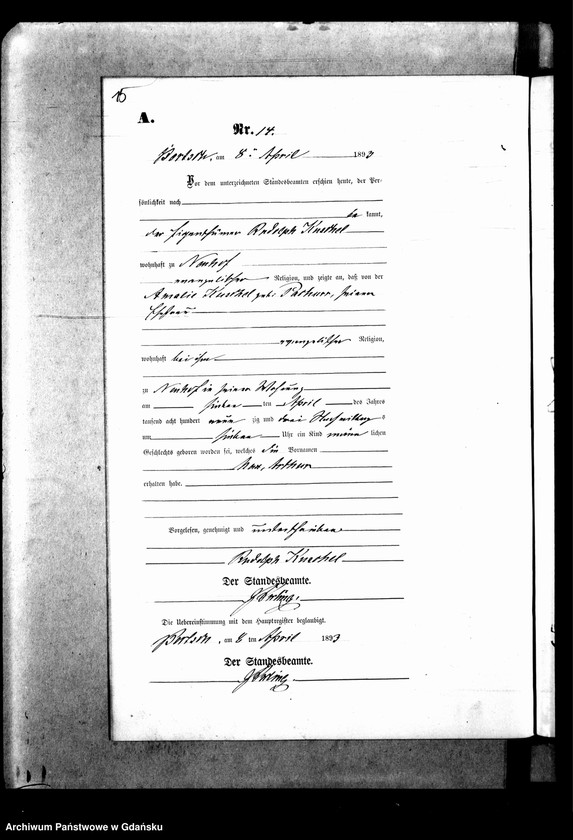 15
A.
Nr. 14.
am 8ten April 1893
Vor dem unterzeichneten Standesbeamten erschien heute, der Per-
sönlichkeit nach
be kannt,
der Eigenthümer Rudolph Kuschel
wohnhaft zu Neuhof
evangelischer Religion, und zeigte an, daß von der
Amalie Kuschel geb. seiner
Ehefrau
evangelischer Religion,
wohnhaft bei ihm
zu Neuhof in seiner Wohnung
am sieben ten April des Jahres
tausend acht hundert neun zig und drei Nachmittag s
um sieben Uhr ein Kind männ lichen
Geschlechts geboren worden sei, welches die Vornamen
Max, Arthur
erhalten habe.
Vorgelesen, genehmigt und unterschrieben
Rudolph Kuschel
Der Standesbeamte.
Die Uebereinstimmung mit dem Hauptregister beglaubigt.
am 8 ten April 1893
Der Standesbeamte.
Archiwum Państwowe w Gdańsku